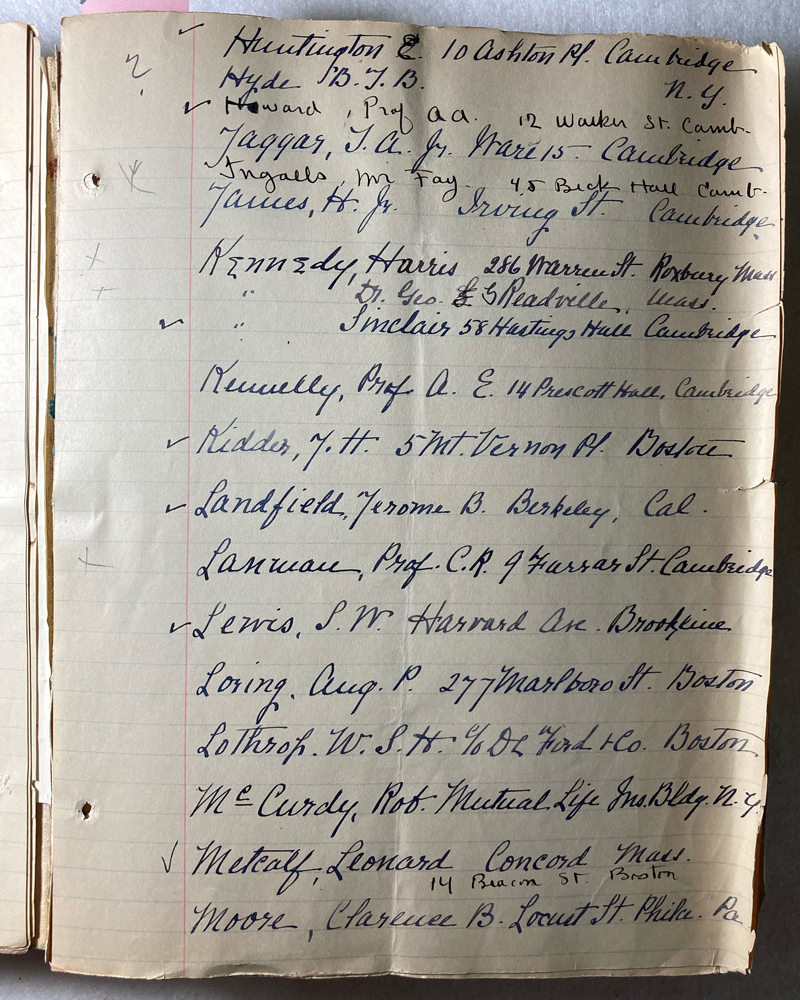 ✓ Huntington E. 10 Ashton Pl. Cambridge
? Hyde B. T. B. N. Y.
✓ Howard, Prof a a. 12 Walker St. Camb.
Jaggar, T. A. Jr. Ware 15 Cambridge
Ingalls, Mr Fay. 45 Beck Hall Camb.
James, H. Jr. Irving St. Cambridge
x Kennedy, Harris 286 Warren St. Roxbury Mass
+ " Dr. Geo. G Readville, Mass.
✓ " Sinclair 58 Hastings Hall Cambridge
Kennelly, Prof. A. E. 14 Prescott Hall, Cambridge
✓ Kidder, N. H. 5 Mt. Vernon Pl. Boston
✓ Landfield, Jerome B. Berkeley, Cal.
x Lanman, Prof. C. R. 9 Farrar St. Cambridge
✓ Lewis, S. W. Harvard Ave. Brookline
Loring, Aug. P. 277 Marlboro St. Boston
Lothrop. W. S. H. c/o Ford & Co. Boston
McCurdy, Rob. Mutual Life Ins. Bldg. N. Y.
✓ Metcalf, Leonard Concord Mass.
14 Beacon St. Boston
Moore, Clarence B. Locust St. Phila. Pa